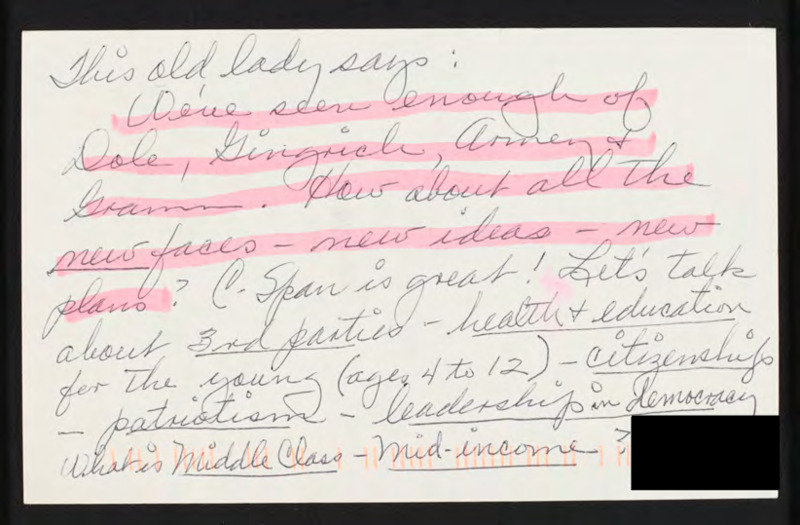 This old lady says:
We've seen enough of
Dole, Gingrich, Armey &
Gramm. How about all the
new faces - new ideas - new
plans? C-Span is great! Let's talk
about 3rd parties - health & education
for the young (ages 4 to 12) - citizenship
- patriotism - leadership in democracy
What is Middle Class - Mid-income - ?